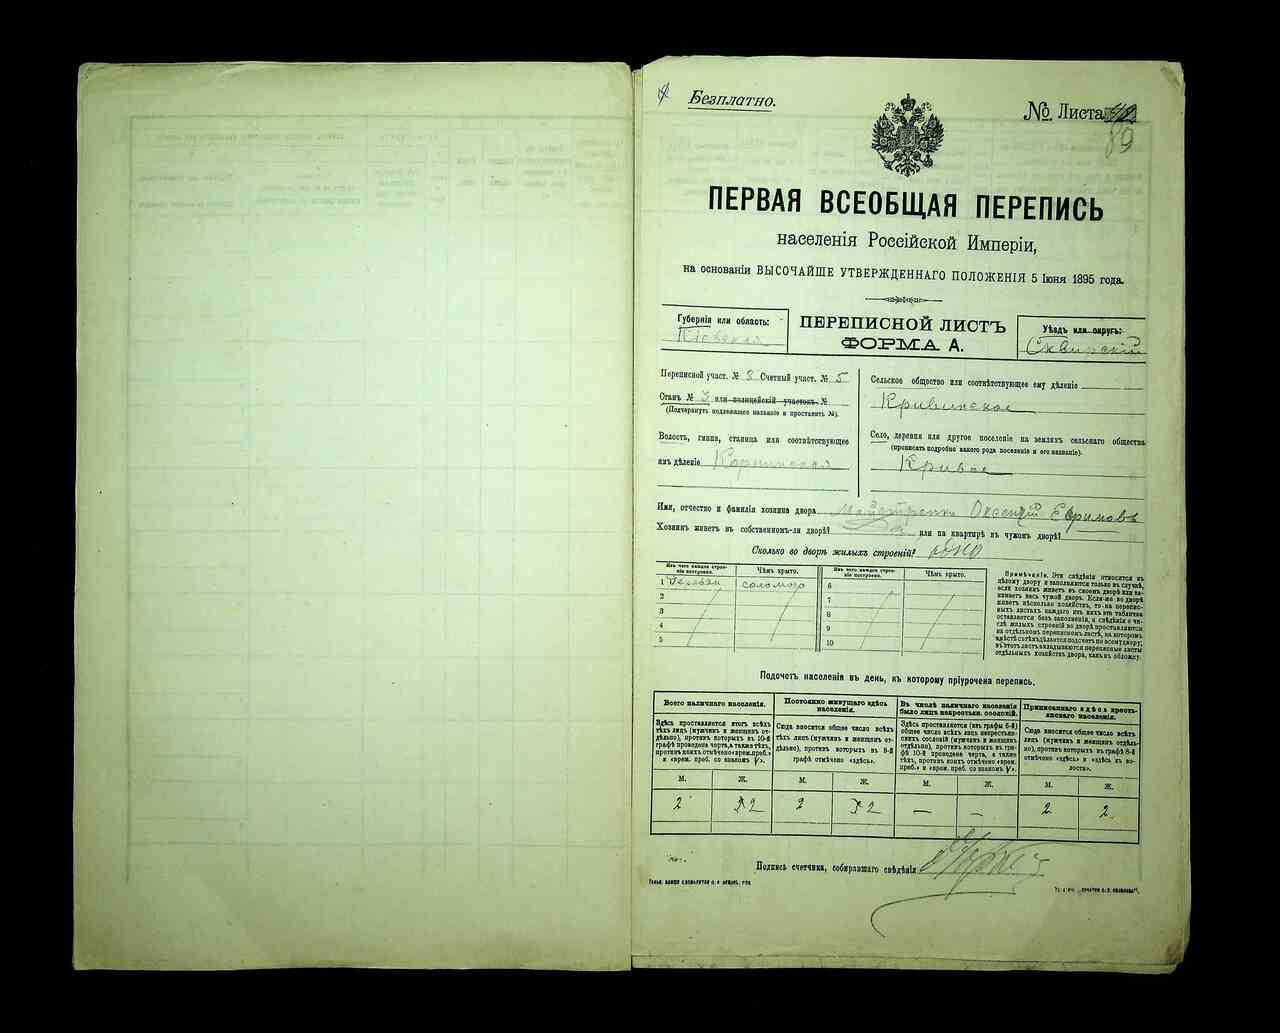 Безплатно.
№ Листа
89
ПЕРВАЯ ВСЕОБЩАЯ ПЕРЕПИСЬ
населенія Россійской Имперіи,
на основаніи ВЫСОЧАЙШЕ УТВЕРЖДЕННАГО ПОЛОЖЕНІЯ 5 Іюня 1895 года.
Губернія или область:
Кіевская
ПЕРЕПИСНОЙ ЛИСТЪ
ФОРМА А.
Уѣздъ или округъ:
Сквирскій
Переписной участ. № 3 Счетный участ. № 5
Станъ № 3 или полицейскій участокъ №
(Подчеркнуть подлежащее названіе и проставить №).
Волость, гмина, станица или соотвѣтствующее
имъ дѣленіе
Сельское общество или соотвѣтствующее ему дѣленіе
Кривинское
Село, деревня или другое поселеніе на земляхъ сельскаго общества
(прописать подробно какого рода поселеніе и его названіе).
Кривое
Имя, отчество и фамилія хозяина двора Майстренко Оксентій Ефримовъ
Хозяинъ живетъ въ собственномъ-ли дворѣ? или на квартирѣ въ чужомъ дворѣ?
Сколько во дворѣ жилыхъ строеній? одно
Изъ чего каждое строеніе построено.
Чѣмъ крыто.
Изъ чего каждое строеніе построено.
Чѣмъ крыто.
1 соломою 6
2 7
3 8
4 9
5 10
Примѣчаніе. Эти свѣдѣнія относятся къ
цѣлому двору и заполняются только въ случаѣ,
если хозяинъ живетъ въ своемъ дворѣ или занимаетъ
весь чужой дворъ. Если-же во дворѣ
живетъ нѣсколько хозяйствъ, то на переписныхъ
листахъ каждаго изъ нихъ эта табличка
оставляется безъ заполненія, а свѣдѣнія о числѣ
жилыхъ строеній во дворѣ проставляются
на отдѣльномъ переписномъ листѣ, на которомъ
вмѣстѣ съ тѣмъ дѣлается подсчетъ по всему двору;
въ этотъ листъ вкладываются переписные листы
отдѣльныхъ хозяйствъ двора, какъ въ обложку.
Подсчетъ населенія въ день, къ которому пріурочена перепись.
Всего наличнаго населенія.
Здѣсь проставляется итогъ всѣхъ
тѣхъ лицъ (мужчинъ и женщинъ отдѣльно),
противъ которыхъ въ 10-й
графѣ проведена черта, а также тѣхъ,
противъ коихъ отмѣчено «врем. преб.»
и «врем. преб. со знакомъ V».
Постоянно живущаго здѣсь
населенія.
Сюда вносится общее число всѣхъ
тѣхъ лицъ (мужчинъ и женщинъ отдѣльно),
противъ которыхъ въ 9-й
графѣ отмѣчено «здѣсь».
Въ числѣ наличнаго населенія
было лицъ некрестьян. сословій.
Здѣсь проставляется (изъ графы 6-й)
общее число всѣхъ лицъ некрестьянскихъ
сословій (мужчинъ и женщинъ
отдѣльно), противъ которыхъ въ графѣ
10-й проведена черта, а также
тѣхъ, противъ коихъ отмѣчено «врем.
преб.» и «врем. преб. со знакомъ V».
Приписаннаго здѣсь крестьянскаго
населенія.
Сюда вносится общее число всѣхъ
лицъ (мужчинъ и женщинъ отдѣльно),
противъ которыхъ въ графѣ 8-й
отмѣчено «здѣсь» и «здѣсь въ волости».
М. Ж. М. Ж. М. Ж. М. Ж.
2 2 2 2 — — 2 2
Подпись счетчика, собиравшаго свѣдѣнія